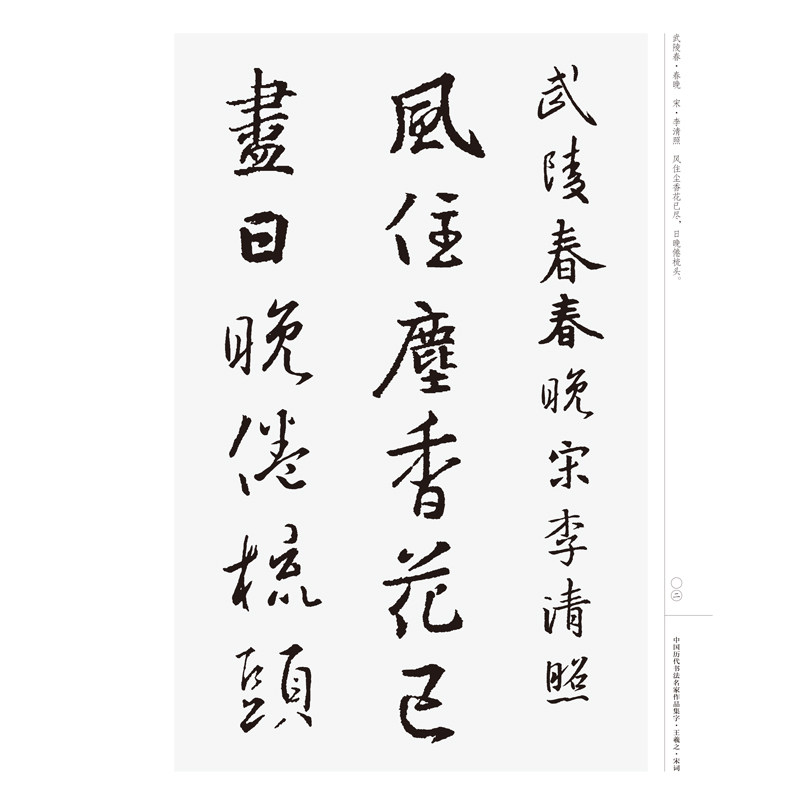 武陵春春晚宋李清照
風住塵香花已
盡日晚倦梳頭
武陵春·春晚 宋·李清照 风住尘香花已尽，日晚倦梳头。
〇二
中国历代书法名家作品集字·王羲之·宋词